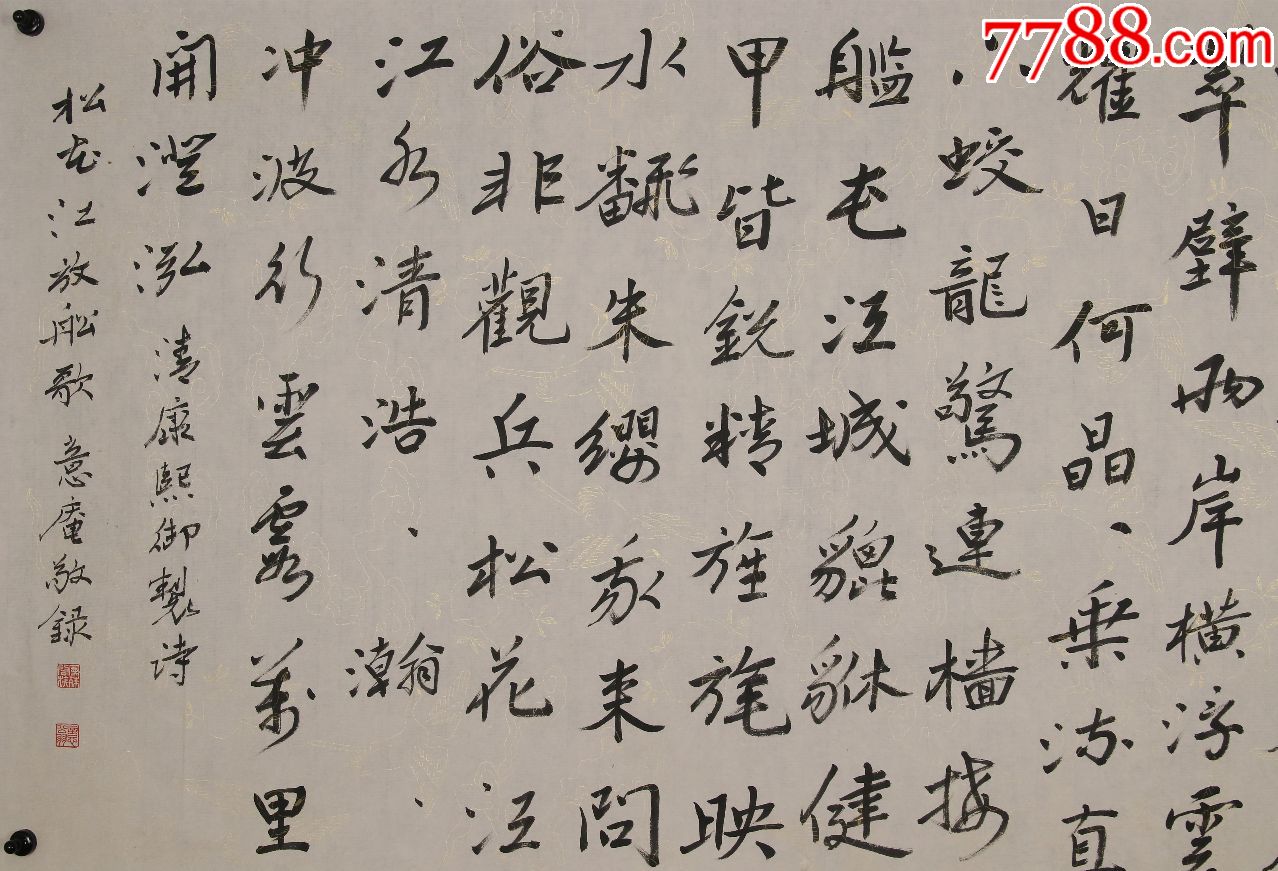 7788.com
翠壁兩岸橫浮雲
耀日何晶、乘流直
下蛟龍驚連檣接
艦屯江城貔貅健
甲皆銳精旌旄映
水翻朱纓我來問
俗非觀兵松花江
江水清浩、瀚、
冲波行雲霞萬里
開澄泓 清康熙御製詩
松花江放船歌 意庵敬録